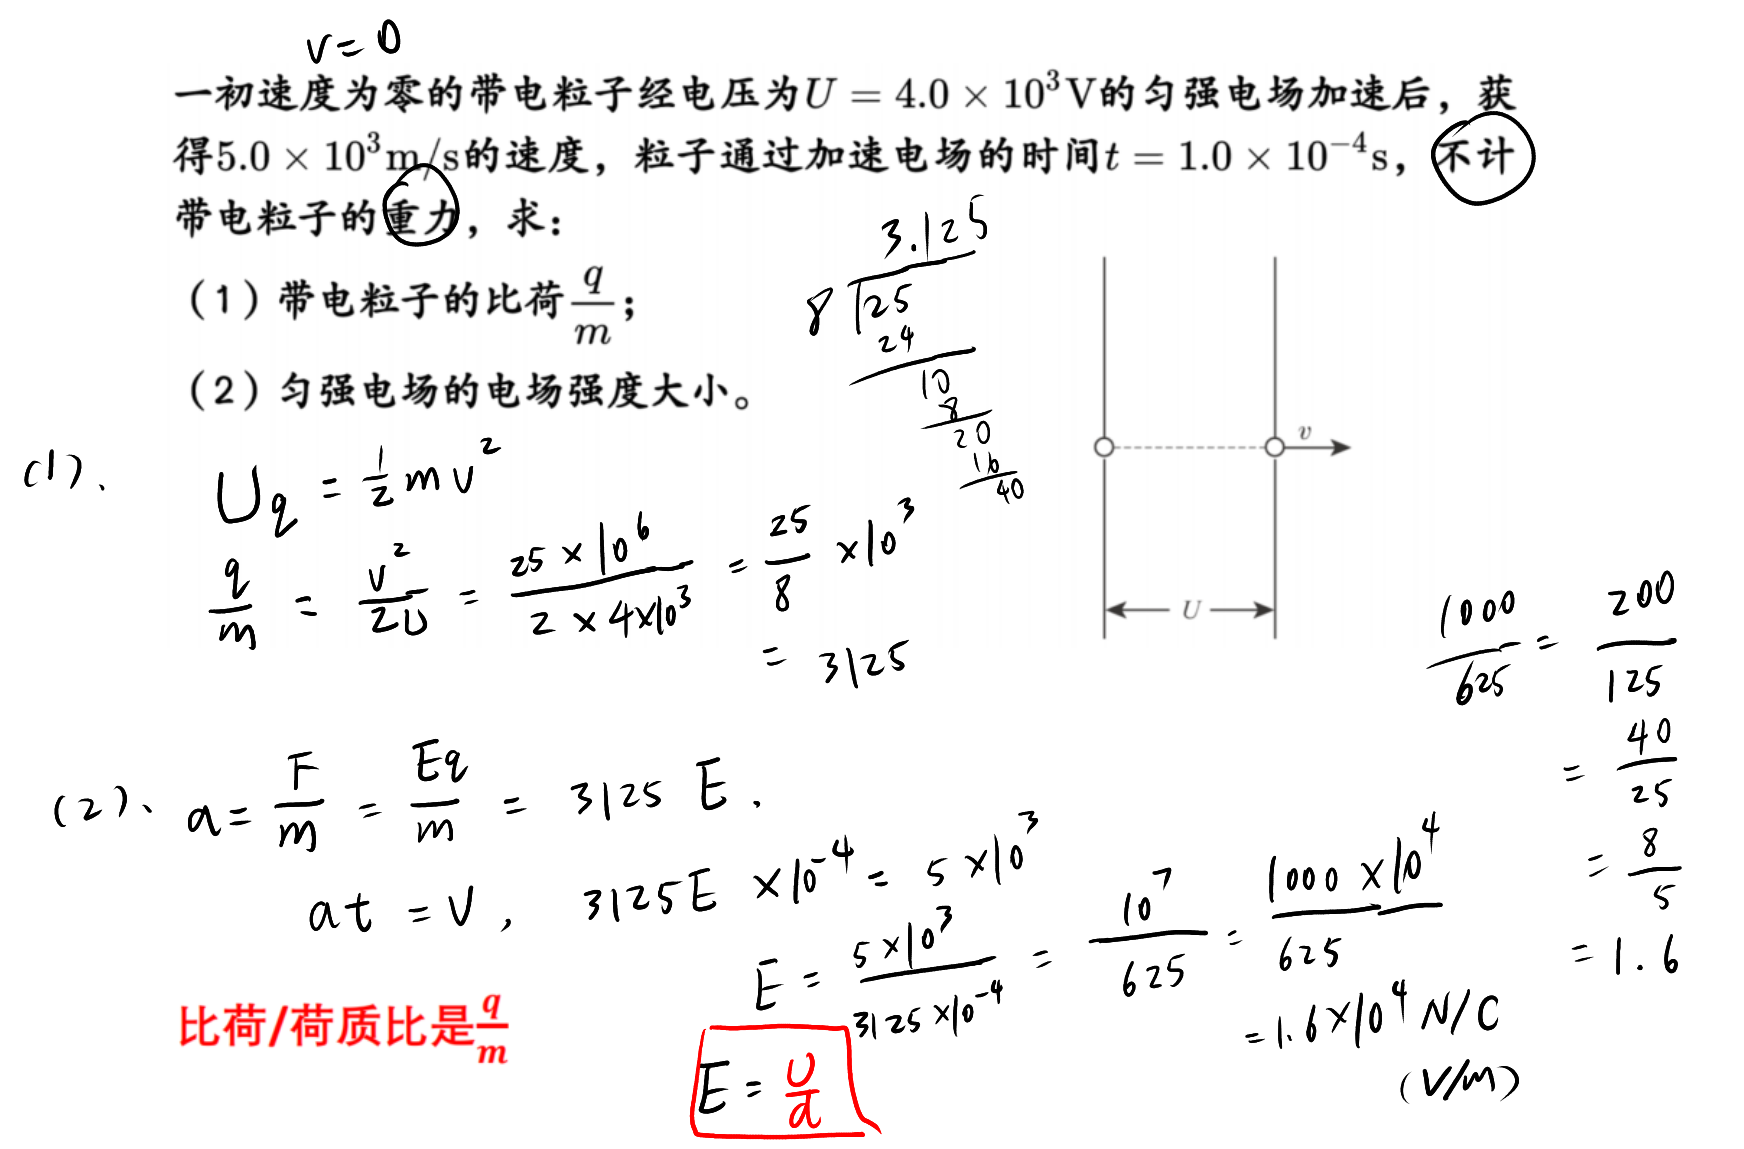 v=0
一初速度为零的带电粒子经电压为U = 4.0 × 10³V的匀强电场加速后，获
得5.0 × 10³m/s的速度，粒子通过加速电场的时间t = 1.0 × 10⁻⁴s，不计
带电粒子的重力，求：
（1）带电粒子的比荷q/m；
（2）匀强电场的电场强度大小。
3.125
8 25
24
10
8
20
16
40
v
U
(1)、 Uq = 1/2 mv²
q/m = v²/2U = 25×10⁶/2×4×10³ = 25/8 ×10³
= 3125
1000/625 = 200/125
= 40/25
= 8/5
= 1.6
(2)、 a = F/m = Eq/m = 3125 E .
at = v , 3125E ×10⁻⁴ = 5×10³
E = 5×10³/3125×10⁻⁴ = 10⁷/625 = 1000×10⁴/625
= 1.6×10⁴ N/C
(V/m)
比荷/荷质比是q/m
E = U/d